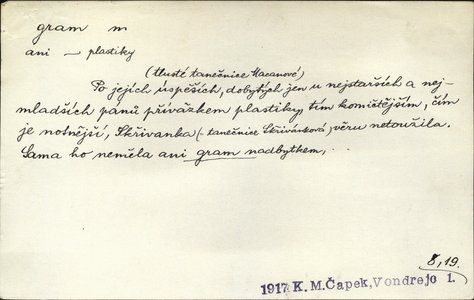 gram m
ani — plastiky
(tlusté tanečnice Macanové)
Po jejích úspěších, dobytých jen u nejstarších a nej-
mladších pánů přívažkem plastiky, tím komičtějším, čím
je notnější, Skřivanka (- tanečnice Skřivánková, věru netoužila.
Sama ho neměla ani gram nadbytkem, . .
8, 19.
1917 K. M. Čapek, Vondrejc 1.